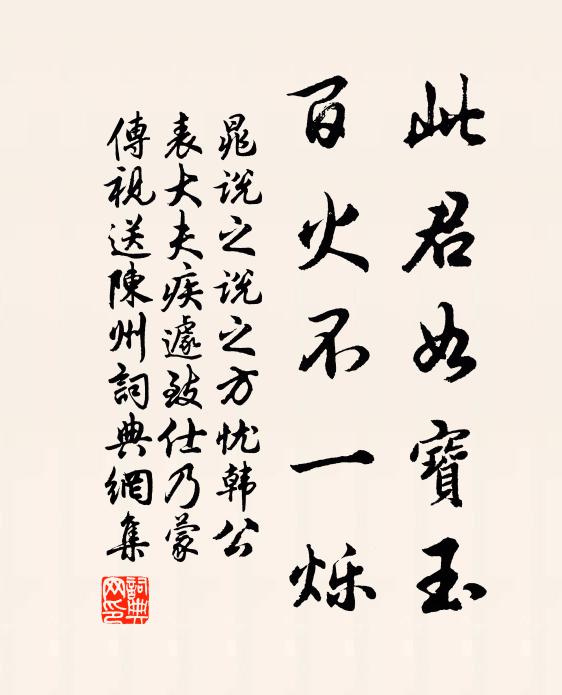 此君如寶玉
百火不一烁
晁说之说之方忧韩公
表大夫疾遽致仕乃蒙
傳視送陳州詞典網集
詞典
网印